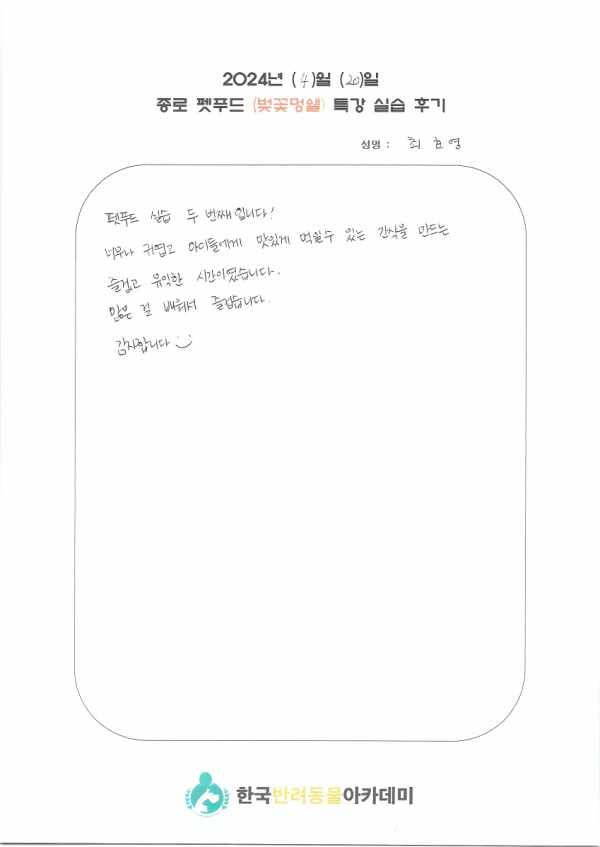 2024년 (4)월 (20)일
종로 펫푸드 (벚꽃멍쉘) 특강 실습 후기
성명 : 최효영
펫푸드 실습 두 번째입니다!
너무나 귀엽고 아이들에게 맛있게 먹일수 있는 간식을 만드는
즐겁고 유익한 시간이였습니다.
많은 걸 배워서 즐겁습니다.
감사합니다
한국반려동물아카데미